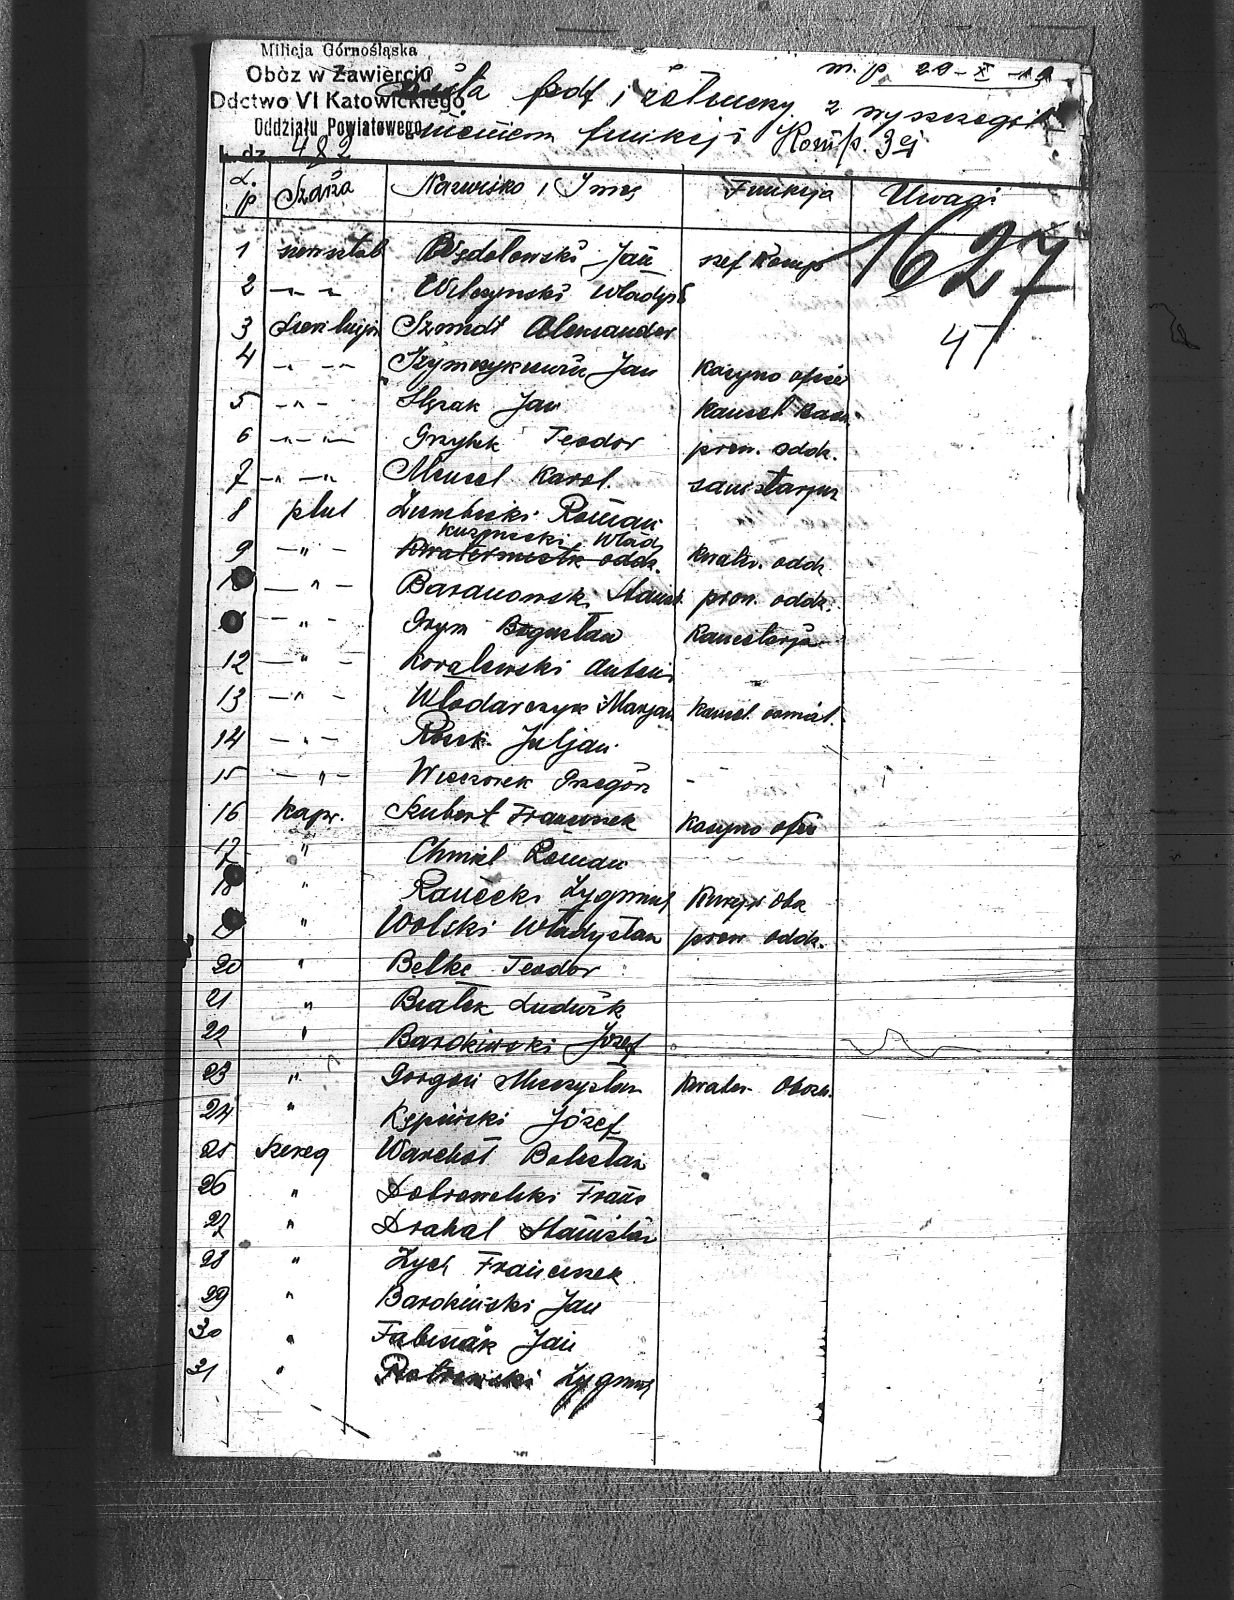 Milicja Górnośląska
Obóz w Zawierciu
Ddctwo VI Katowickiego
Oddziału Powiatowego
L. dz. 482
m.p. 29-X-19
Lista podf i żołnierzy z wyszczegól
nieniem funkcji Komp. 3ej
L. p Szarża Nazwisko i Imię Funkcja Uwagi
1627
47
1 Jan szef Komp
2 -"- Wilczyński Władys
3 Szmidt Aleksander
4 -"- Jan Kasyno ofice
5 -"- Ślęzak Jan Kancel
6 -"- Grzybek Teodor prow. oddz.
7 -"- Mensel Karol sanitarjusz
8 plut Ziembicki Roman
9 -"- Kuźnicki Wład Kwater. oddz
Kwatermistrz oddz.
10 -"- Baranowski Stanisł. prow. oddz.
-"- Grym Bogusław Kancelarja
12 -"- Kowalewski Antoni
13 -"- Włodarczyk Marjan Kancel.
14 -"- Juljan
15 -"- Wieczorek Grzegorz -
16 kapr. Szubert Franciszek Kasyno ofic
17 " Chmiel Roman
18 " Ranecki Zygmunt
" Wolski Władysław prow oddz.
20 " Belke Teodor
21 " Białek Ludwik
22 " Józef
23 " Gorgoń Mieczysław Kwater. Obozu.
24 " Kępiński Józef
25 Szereg Warchoł Bolesław
26 " Dobrowolski Franc
27 " Drahal Stanisław
28 " Zych Franciszek
29 " Barokiński Jan
30 " Fabisiak Jan
31 " Zygmunt